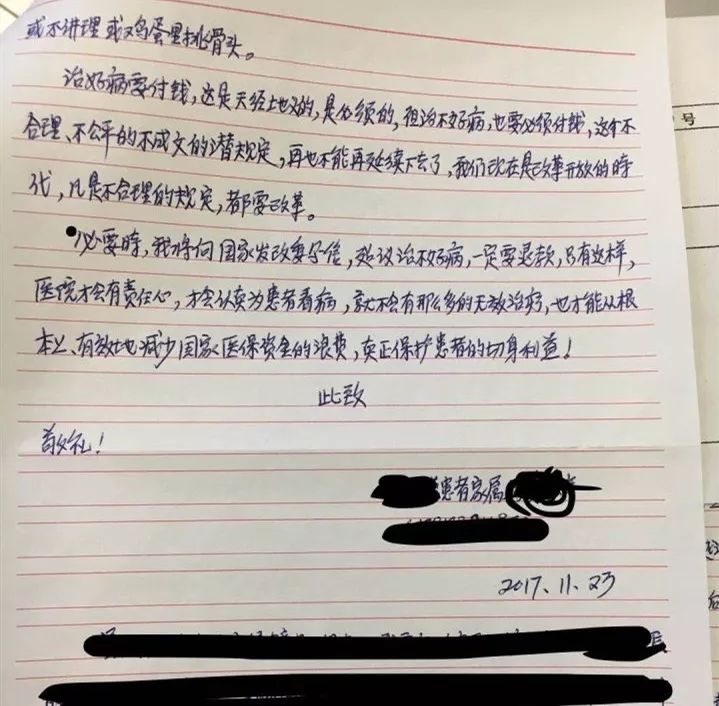 或不讲理或鸡蛋里挑骨头。
治好病要付钱,这是天经地义的,是必须的,但治不好病,也要必须付钱,这个不
合理、不公平的不成文的潜规定,再也不能再延续下去了,我们现在是改革开放的时
代,凡是不合理的规定,都要改革。
必要时,我将向国家发改委写信,建议治不好病,一定要退款,只有这样,
医院才会有责任心,才会认真为患者看病,就不会有那么多的无效治疗,也才能从根
本上、有效地减少国家医保资金的浪费,真正保护患者的切身利益!
此致
敬礼!
患者家属
2017.11.23
号